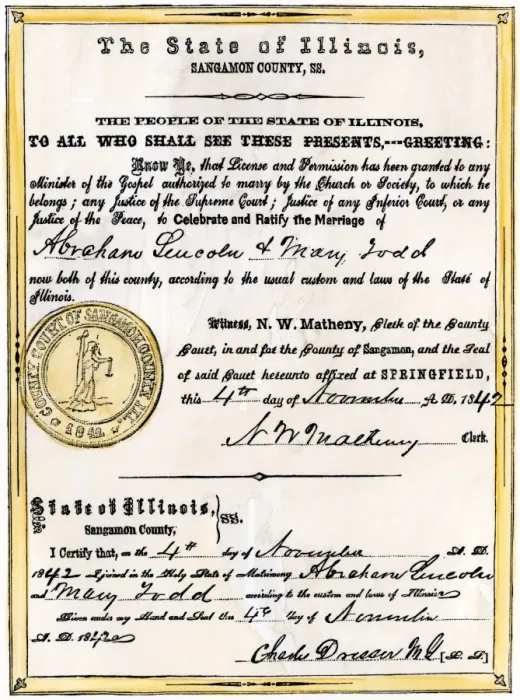 The State of Illinois,
SANGAMON COUNTY, SS.
THE PEOPLE OF THE STATE OF ILLINOIS,
TO ALL WHO SHALL SEE THESE PRESENTS,---GREETING:
Know Ye, that License and Permission has been granted to any
Minister of the Gospel authorized to marry by the Church or Society, to which he
belongs; any Justice of the Supreme Court; Justice of any Inferior Court, or any
Justice of the Peace, to Celebrate and Ratify the Marriage of
Abraham Lincoln & Mary Todd
now both of this county, according to the usual custom and laws of the State of
Illinois.
Witness, N. W. Matheny, Clerk of the County
Court, in and for the County of Sangamon, and the Seal
of said Court hereunto affixed at SPRINGFIELD,
this 4th day of November A. D. 1842
N W Matheny Clerk.
COUNTY COURT OF SANGAMON COUNTY ILL.
1841
State of Illinois,
Sangamon County, } SS.
I Certify that, on the 4th day of November A. D.
1842 I joined in the Holy State of Matrimony Abraham Lincoln
and Mary Todd according to the custom and laws of Illinois
Given under my Hand and Seal this 4th day of November
A. D. 1842
Charles Dresser [L. S.]